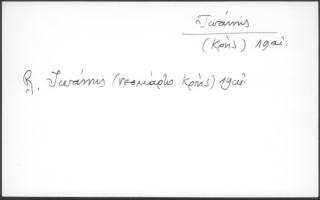 Ἰωάννης
(Κρὴς) 19αἰ.
R. Ἰωάννης (νεομάρτυς Κρὴς) 19αἰ.